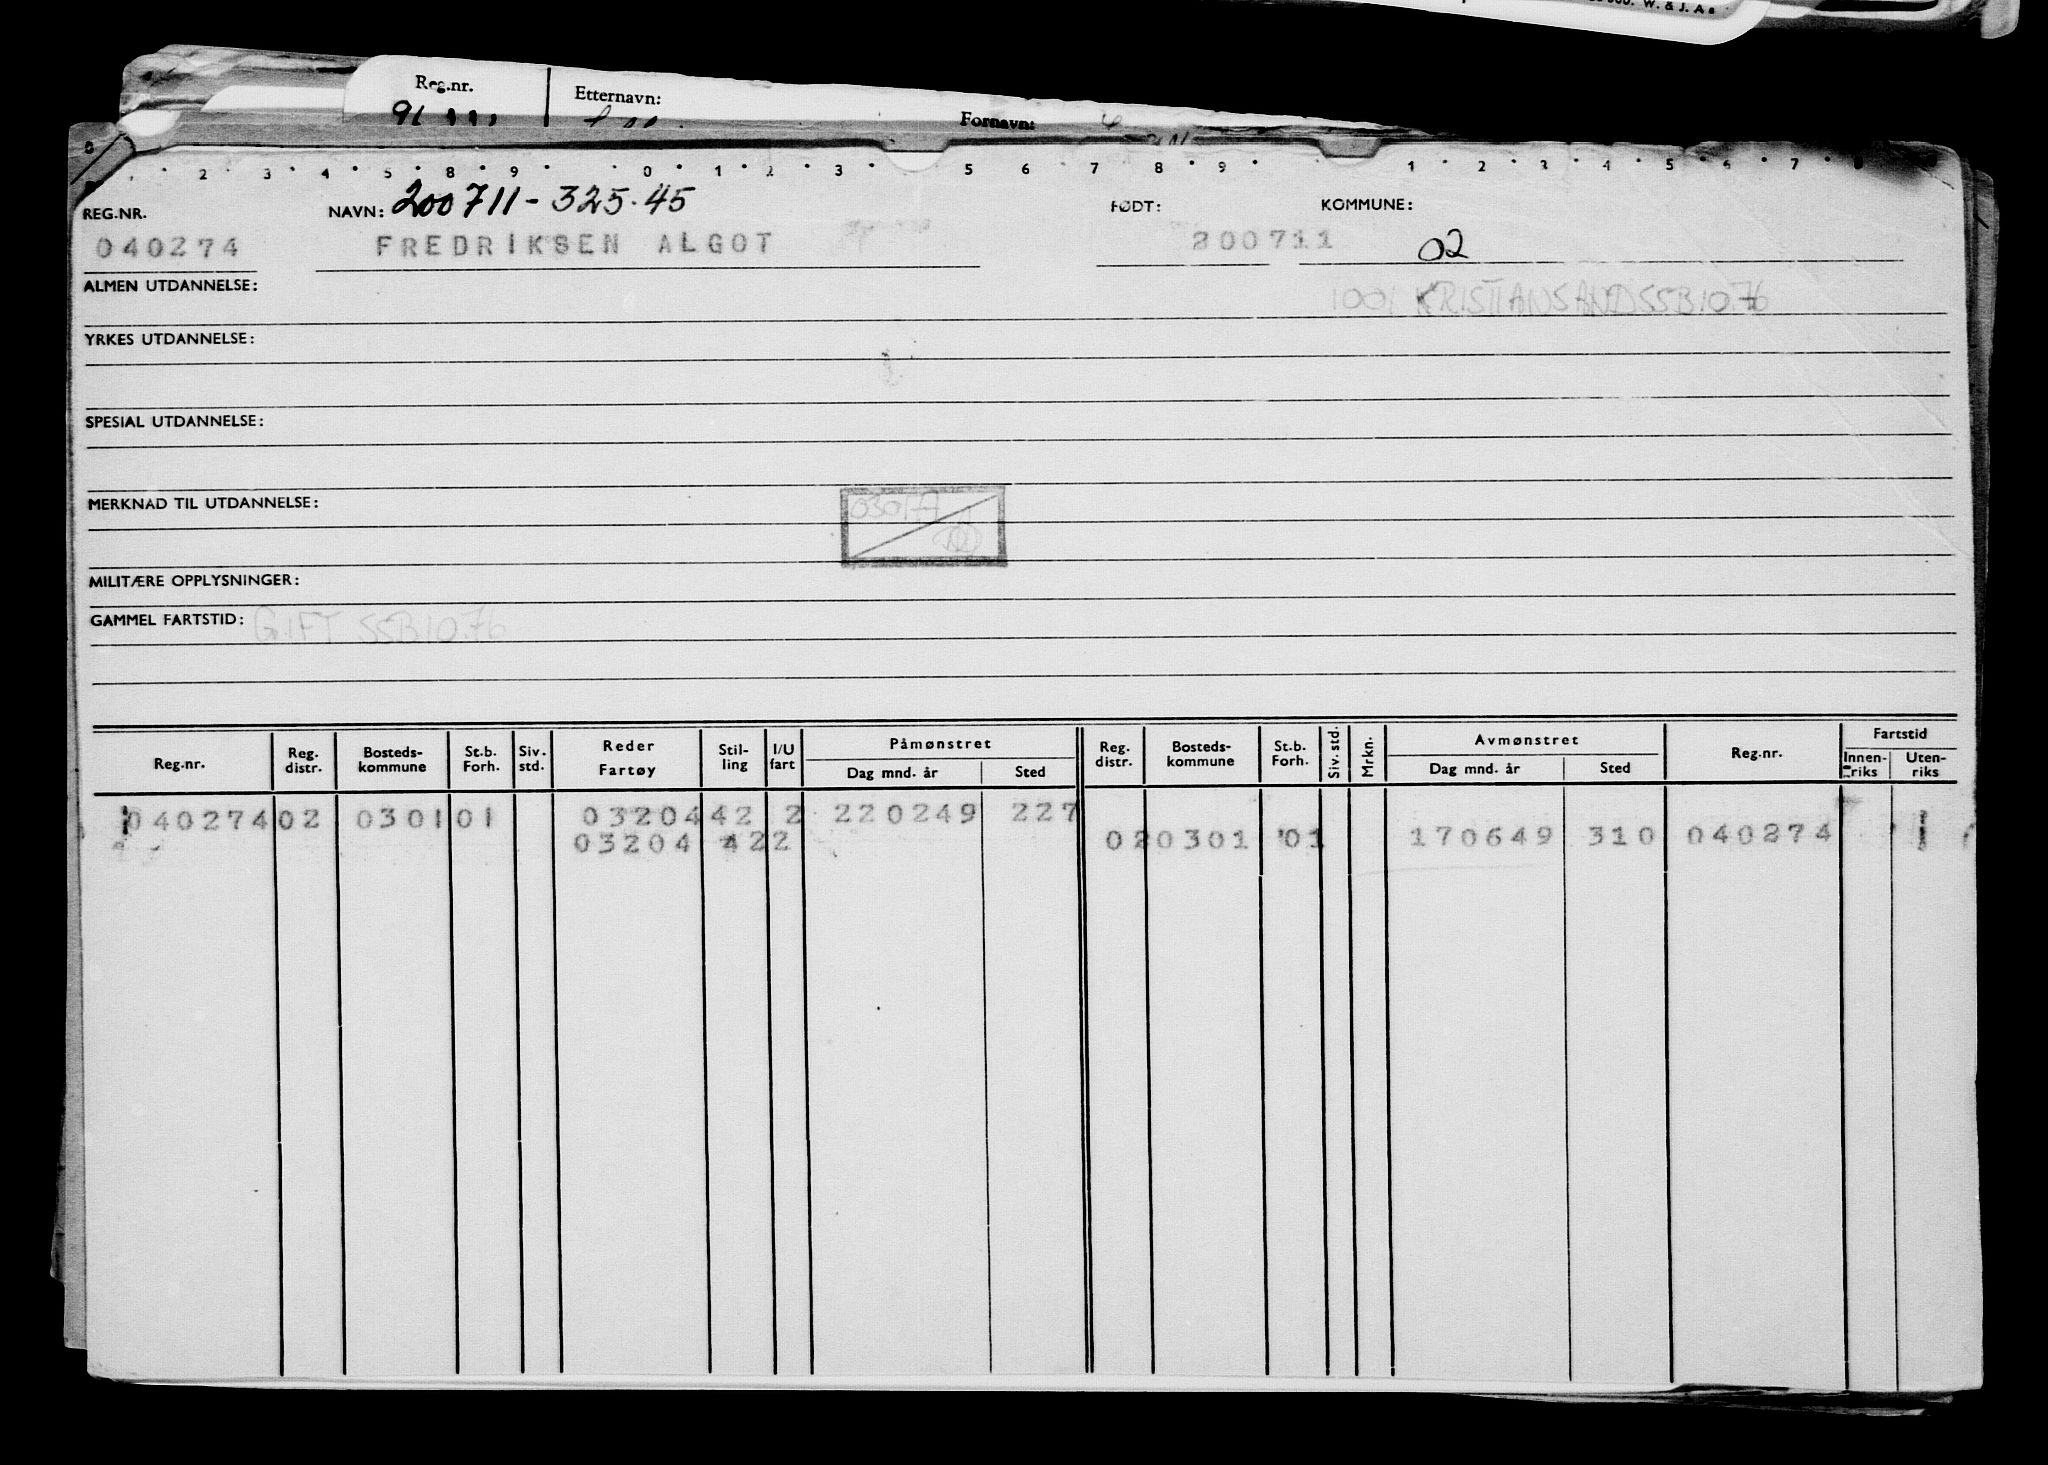 W. & J. A
Reg.nr. Etternavn: Fornavn:
2 3 4 5 8 9 0 1 2 3 5 6 7 8 9 1 2 3 4 5 6 7 8
REG.NR. NAVN: 200711-325.45 FØDT: KOMMUNE:
040274 FREDRIKSEN ALGOT 200711 02
ALMEN UTDANNELSE: 1001 KRISTIANSAND SSB10.76
YRKES UTDANNELSE:
SPESIAL UTDANNELSE:
MERKNAD TIL UTDANNELSE: 030177
MILITÆRE OPPLYSNINGER:
GAMMEL FARTSTID: GIFT SSB10.76
Reg.nr. Reg. distr. Bosteds-kommune St.b. Forh. Siv. std. Reder Fartøy Stil-ling I/U fart Påmønstret Dag mnd. år Sted Reg. distr. Bosteds-kommune St.b. Forh. Siv. std. Mrkn. Avmønstret Dag mnd. år Sted Reg.nr. Fartstid Innen-riks Uten-riks
040274 02 0301 01 03204 42 2 220249 227
03204 42 2 02 0301 01 170649 310 040274 1